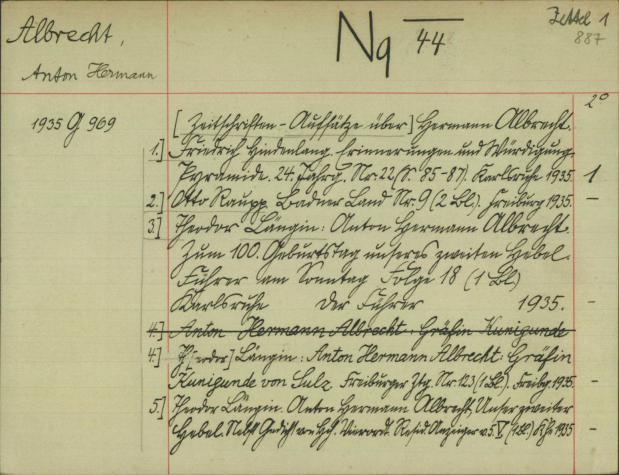 Albrecht,
Anton Hermann
Nq 44
Zettel 1
887
2°
1935 G 969
[Zeitschriften-Aufsätze über] Hermann Albrecht.
1.] Friedrich Hindenlang. Erinnerungen und Würdigung.
Pyramide. 24. Jahrg. Nr. 22 (S. 85-87). Karlsruhe 1935. 1
2.] Otto Raupp. Badner Land Nr. 9 (2 Bl). Freiburg 1935. –
3.] Theodor Längin: Anton Hermann Albrecht.
Zum 100. Geburtstag unseres zweiten Hebel.
Führer am Sonntag Folge 18 (1 Bl)
Karlsruhe Der Führer 1935. –
4.] Anton Hermann Albrecht: Gräfin Kunigunde
4.] Th[eodor] Längin: Anton Hermann Albrecht: Gräfin
Kunigunde von Sulz. Freiburger Ztg. Nr. 123 (1 Bl). Freibg. 1935. –
5.] Theodor Längin. Anton Hermann Albrecht, Unser zweiter
Hebel. Nebst Gedicht von Hch. Vierordt. Resid. Anzeiger v. 5. V. (1 Bl) K'he 1935 –